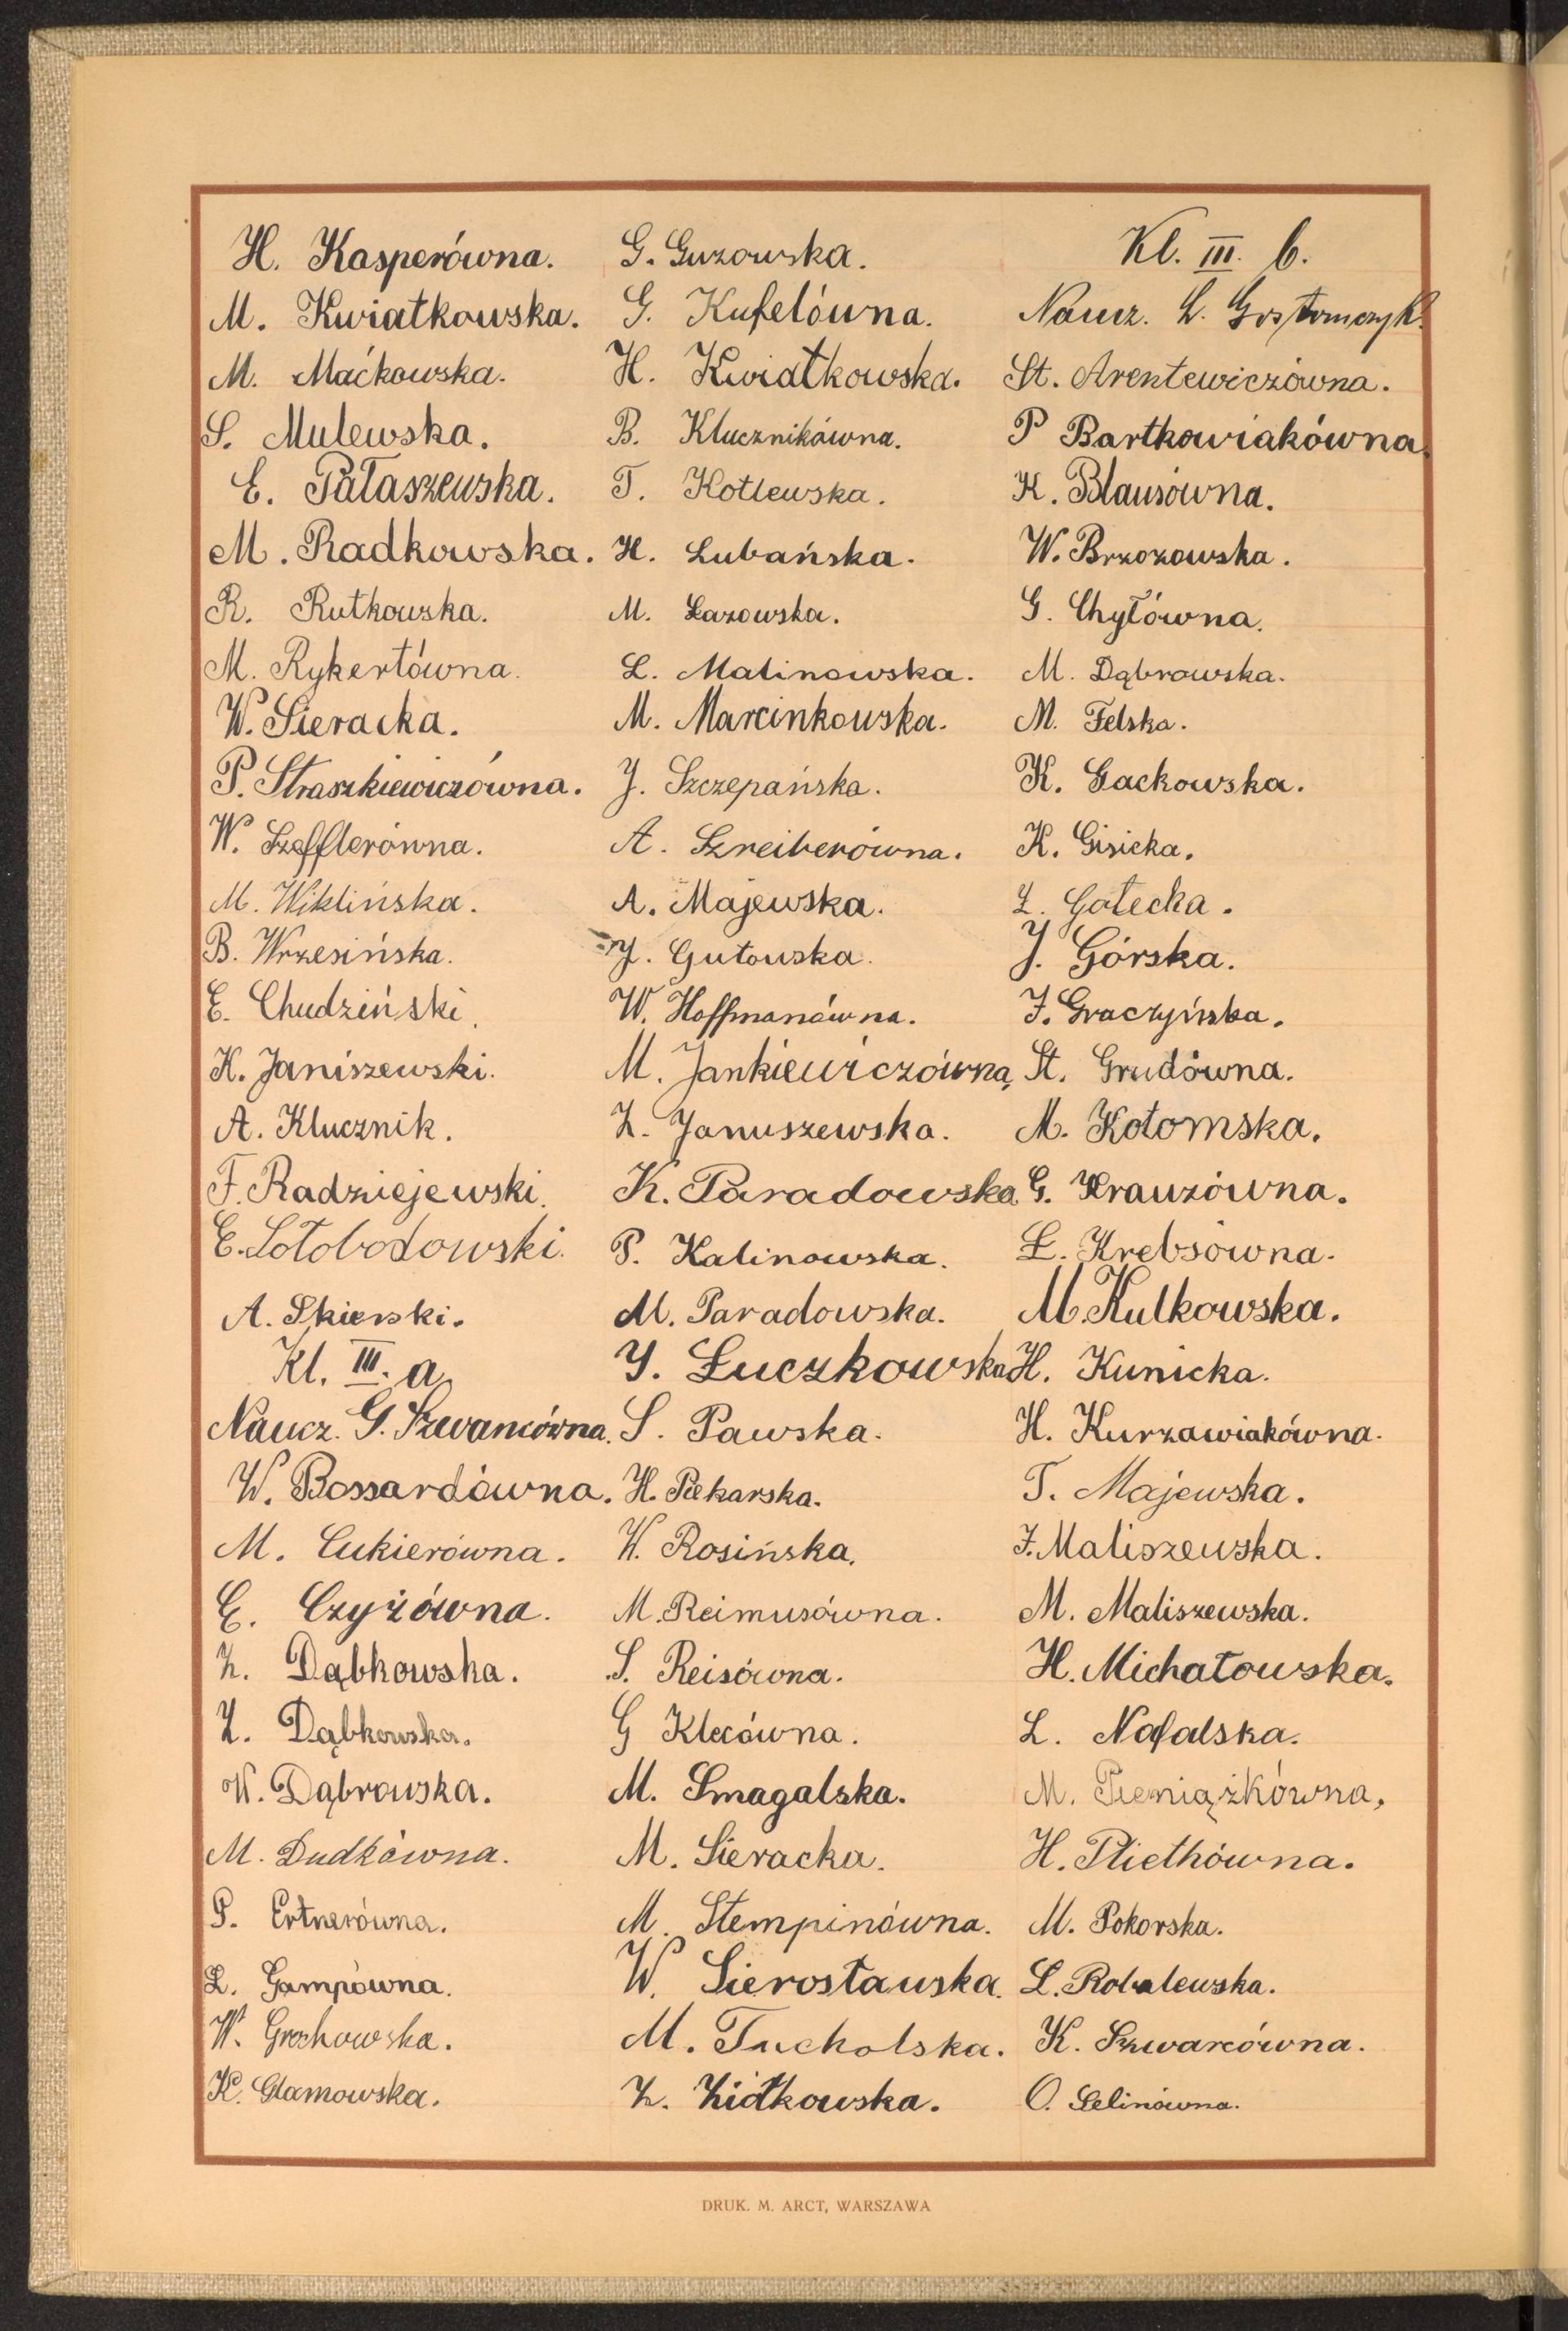 H. Kasperówna.
M. Kwiatkowska.
M. Maćkowska.
S. Mulewska.
E. Pałaszewska.
M. Radkowska.
R. Rutkowska.
M. Rykertówna.
W. Sieracka.
P. Straszkiewiczówna.
W. Szefflerówna.
M. Wiklińska.
B. Wrzesińska.
E. Chudziński.
K. Janiszewski.
A. Klucznik.
F. Radziejewski.
E. Sołobodowski.
A. Skierski.
Kl. III. a.
Naucz. G. Szwancówna.
W. Bossardówna.
M. Cukierówna.
E. Czyżówna.
Z. Dąbkowska.
Z. Dąbkowska.
W. Dąbrowska.
M. Dudkówna.
P. Ertnerówna.
L. Gampówna.
W. Grochowska.
K. Glamowska.
G. Guzowska.
G. Kufelówna.
H. Kwiatkowska.
B. Klucznikówna.
T. Kotlewska.
H. Lubańska.
M. Łazowska.
L. Malinowska.
M. Marcinkowska.
J. Szczepańska.
A. Szreiberówna.
A. Majewska.
J. Gutowska.
W. Hoffmanówna.
M. Jankiewiczówna.
Z. Januszewska.
K. Paradowska
P. Kalinowska.
M. Paradowska.
J. Łuczkowska
S. Pawska.
H. Piekarska.
W. Rosińska.
M. Reimusówna.
S. Reisówna.
G Klecówna.
M. Smagalska.
M. Sieracka.
M. Stempinówna.
W. Sierosławska.
M. Tucholska.
Z. Ziółkowska.
Kl. III. b.
Naucz. L. Gostomczyk.
St. Arentewiczówna.
P Bartkowiakówna.
K. Blausówna.
W. Brzozowska.
G. Chyłówna.
M. Dąbrowska.
M. Felska.
K. Gackowska.
K. Gisicka.
Z. Gołecka.
J. Górska.
F. Graczyńska.
St. Grudówna.
M. Kołomska.
G. Krauzówna.
Ł. Krebsówna.
M. Kulkowska.
H. Kunicka.
H. Kurzawiakówna.
T. Majewska.
F. Maliszewska.
M. Maliszewska.
H. Michałowska.
L. Nafalska.
M. Pieniążkówna.
H. Pliethówna.
M. Pokorska.
L. Robalewska.
K. Szwarcówna.
O. Selinówna.
DRUK. M. ARCT, WARSZAWA